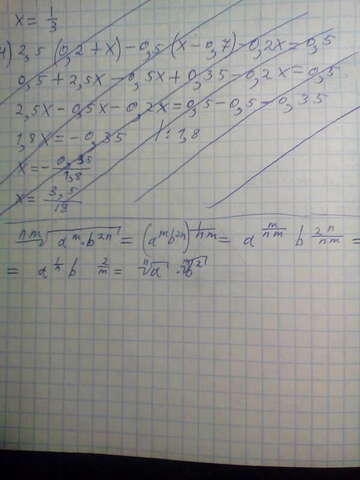 x = 1/3
4) 2,5 (0,2 + x) - 0,5 (x - 0,7) - 0,2x = 0,5
0,5 + 2,5x - 0,5x + 0,35 - 0,2x = 0,5
2,5x - 0,5x - 0,2x = 0,5 - 0,5 - 0,35
1,8x = -0,35 | : 1,8
x = - 0,35/1,8
x = - 3,5/18
ⁿᵐ√(aᵐ · b²ⁿ) = (aᵐb²ⁿ)^(1/nm) = a^(m/nm) b^(2n/nm) =
= a^(1/n) b^(2/m) = ⁿ√a · ᵐ√b²